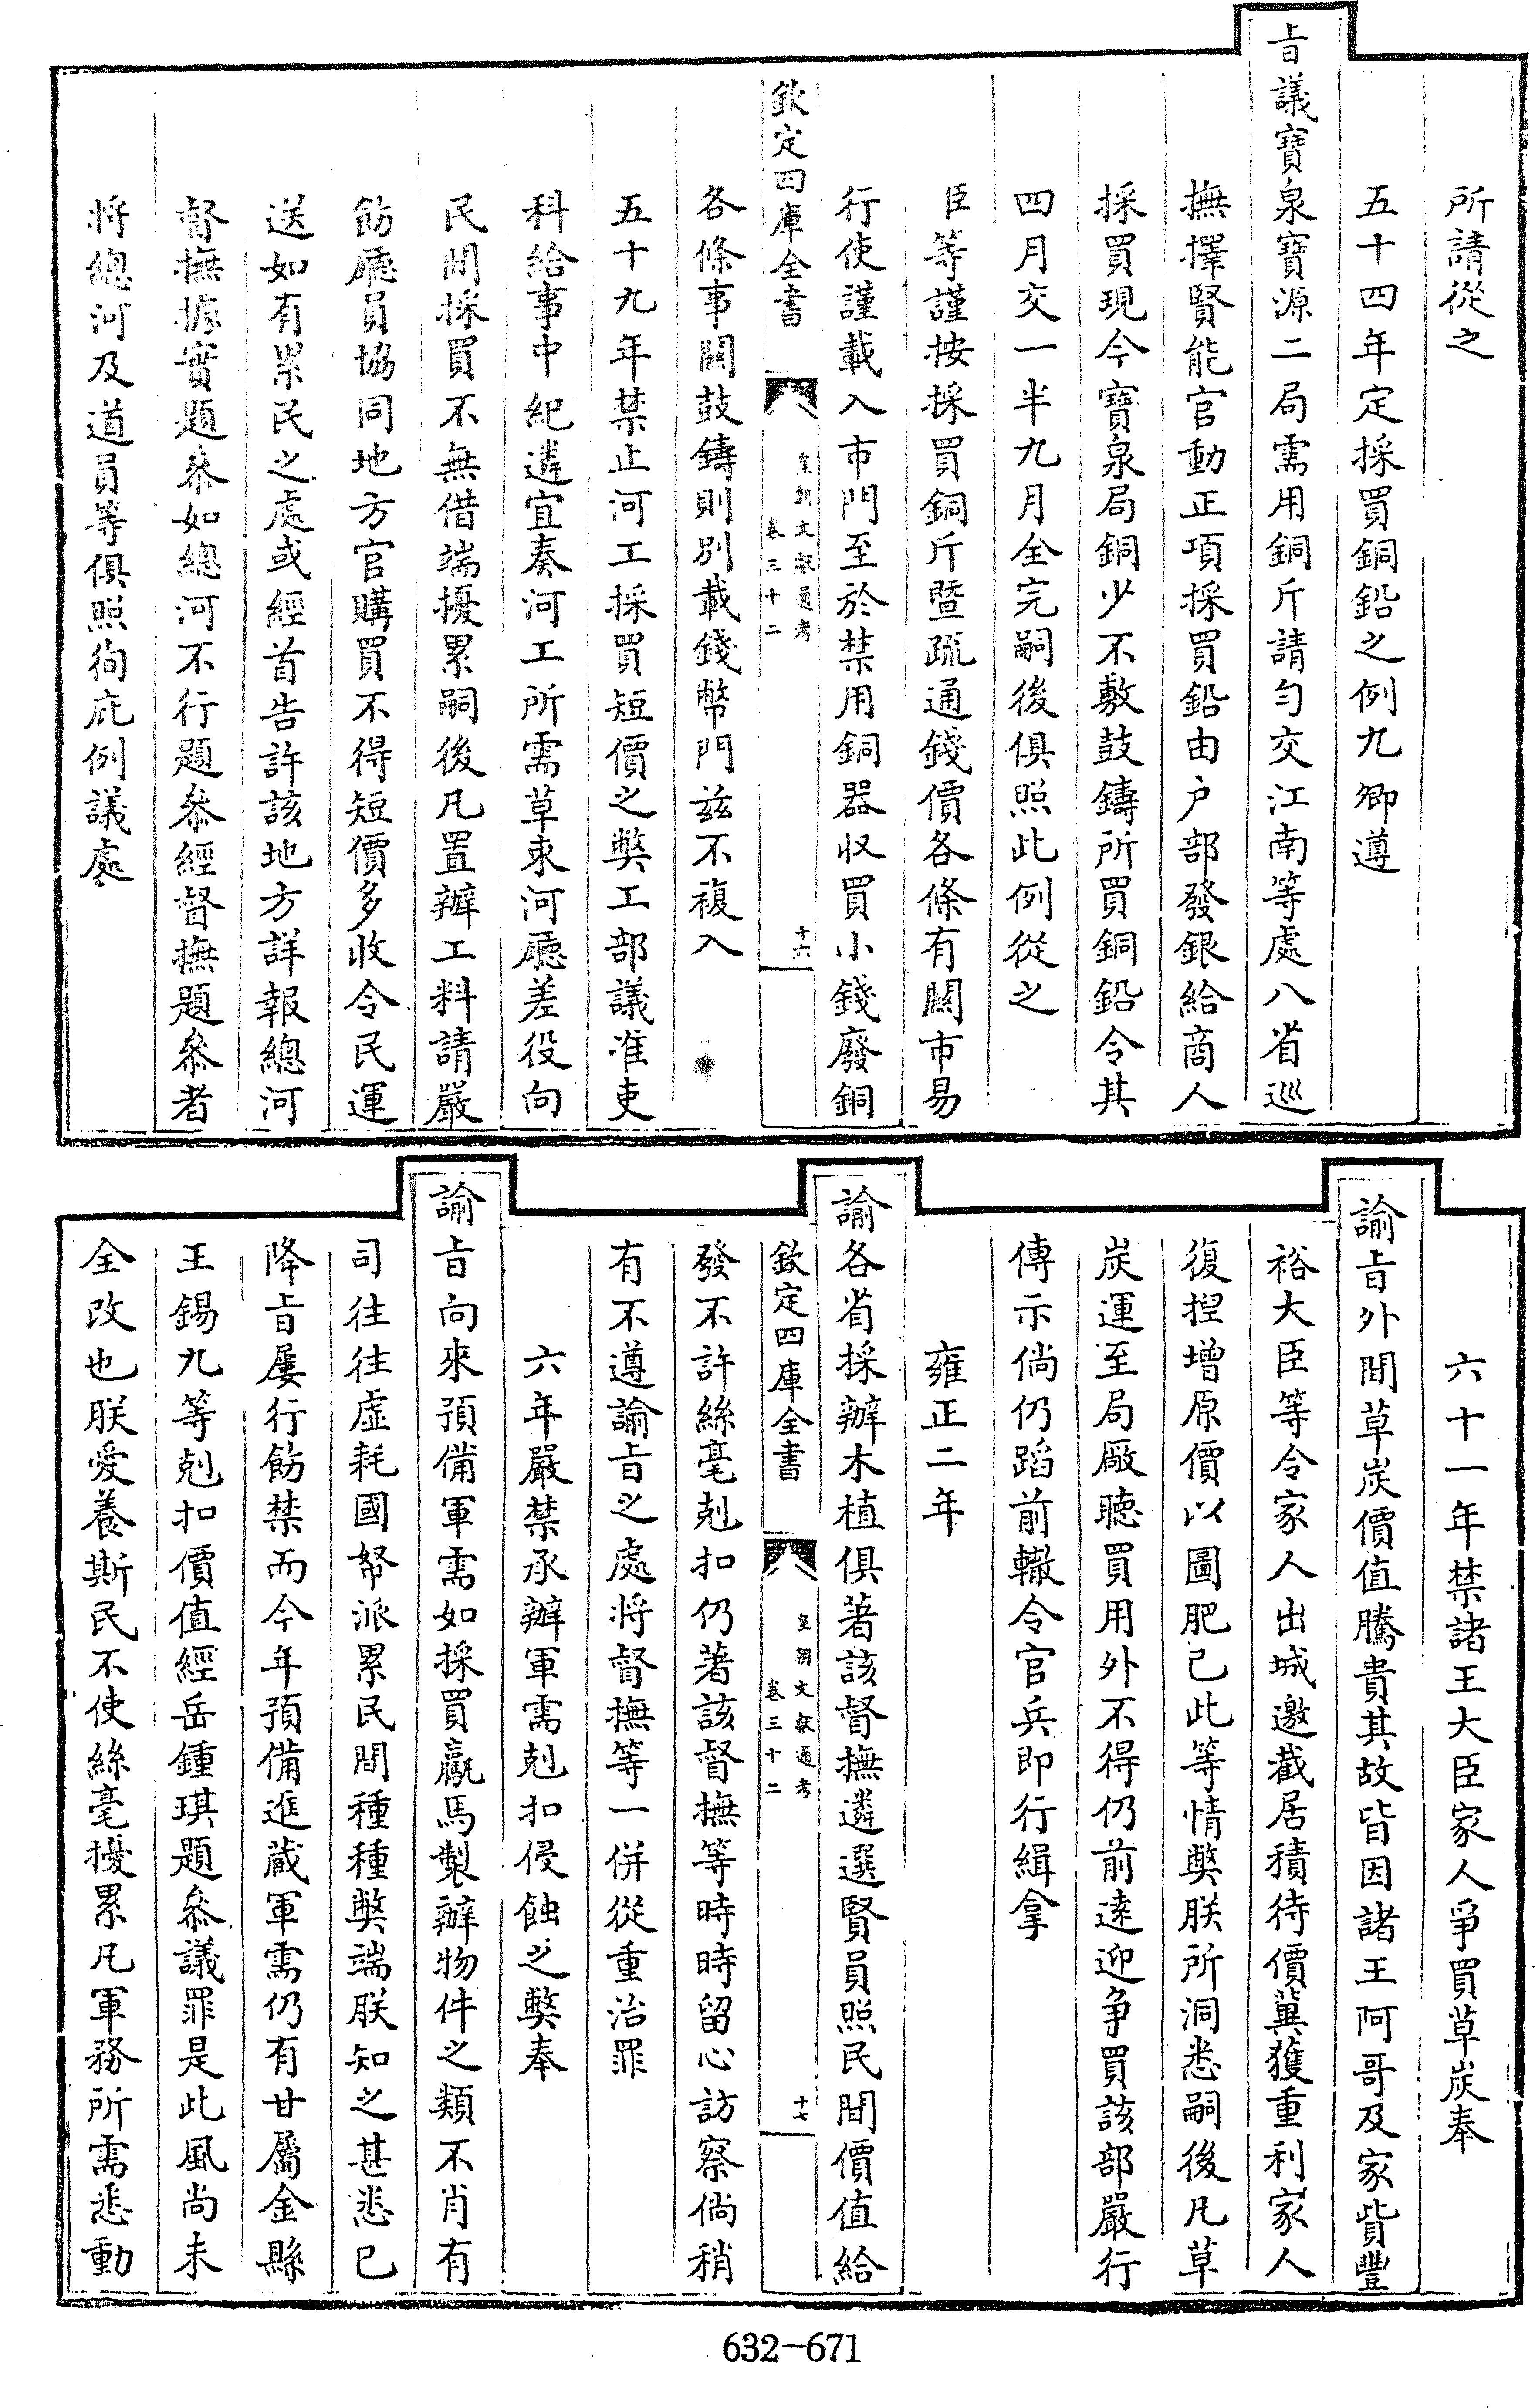 所請從之
五十四年定採買銅鉛之例九卿遵
旨議寶泉寶源二局需用銅斤請勻交江南等處八省巡
撫擇賢能官動正項採買鉛由户部發銀給商人
採買現今寶泉局銅少不敷鼓鑄所買銅鉛令其
四月交一半九月全完嗣後俱照此例從之
臣等謹按採買銅斤暨疏通錢價各條有關市易
行使謹載入市門至於禁用銅器收買小錢廢銅
欽定四庫全書
皇朝文獻通考
卷三十二
十六
各條事關鼓鑄則別載錢幣門兹不複入
五十九年禁止河工採買短價之弊工部議准吏
科給事中紀遴宜奏河工所需草束河廳差役向
民間採買不無借端擾累嗣後凡置辦工料請嚴
飭廳員協同地方官購買不得短價多收令民運
送如有累民之處或經首告許該地方詳報總河
督撫據實題參如總河不行題參經督撫題參者
將總河及道員等俱照徇庇例議處
六十一年禁諸王大臣家人爭買草炭奉
諭旨外間草炭價值騰貴其故皆因諸王阿哥及家貲豐
裕大臣等令家人出城邀截居積待價冀獲重利家人
復揑增原價以圖肥己此等情弊朕所洞悉嗣後凡草
炭運至局厰聽買用外不得仍前遠迎争買該部嚴行
傳示倘仍蹈前轍令官兵即行緝拿
雍正二年
諭各省採辦木植俱著該督撫遴選賢員照民間價值給
欽定四庫全書
皇朝文獻通考
卷三十二
十七
發不許絲毫剋扣仍著該督撫等時時留心訪察倘稍
有不遵諭旨之處將督撫等一併從重治罪
六年嚴禁承辦軍需剋扣侵蝕之弊奉
諭旨向來預備軍需如採買羸馬製辦物件之類不肖有
司往往虛耗國帑派累民間種種弊端朕知之甚悉已
降旨屢行飭禁而今年預備進藏軍需仍有甘屬金縣
王錫九等剋扣價值經岳鍾琪題參議罪是此風尚未
全改也朕愛養斯民不使絲毫擾累凡軍務所需悉動
632-671